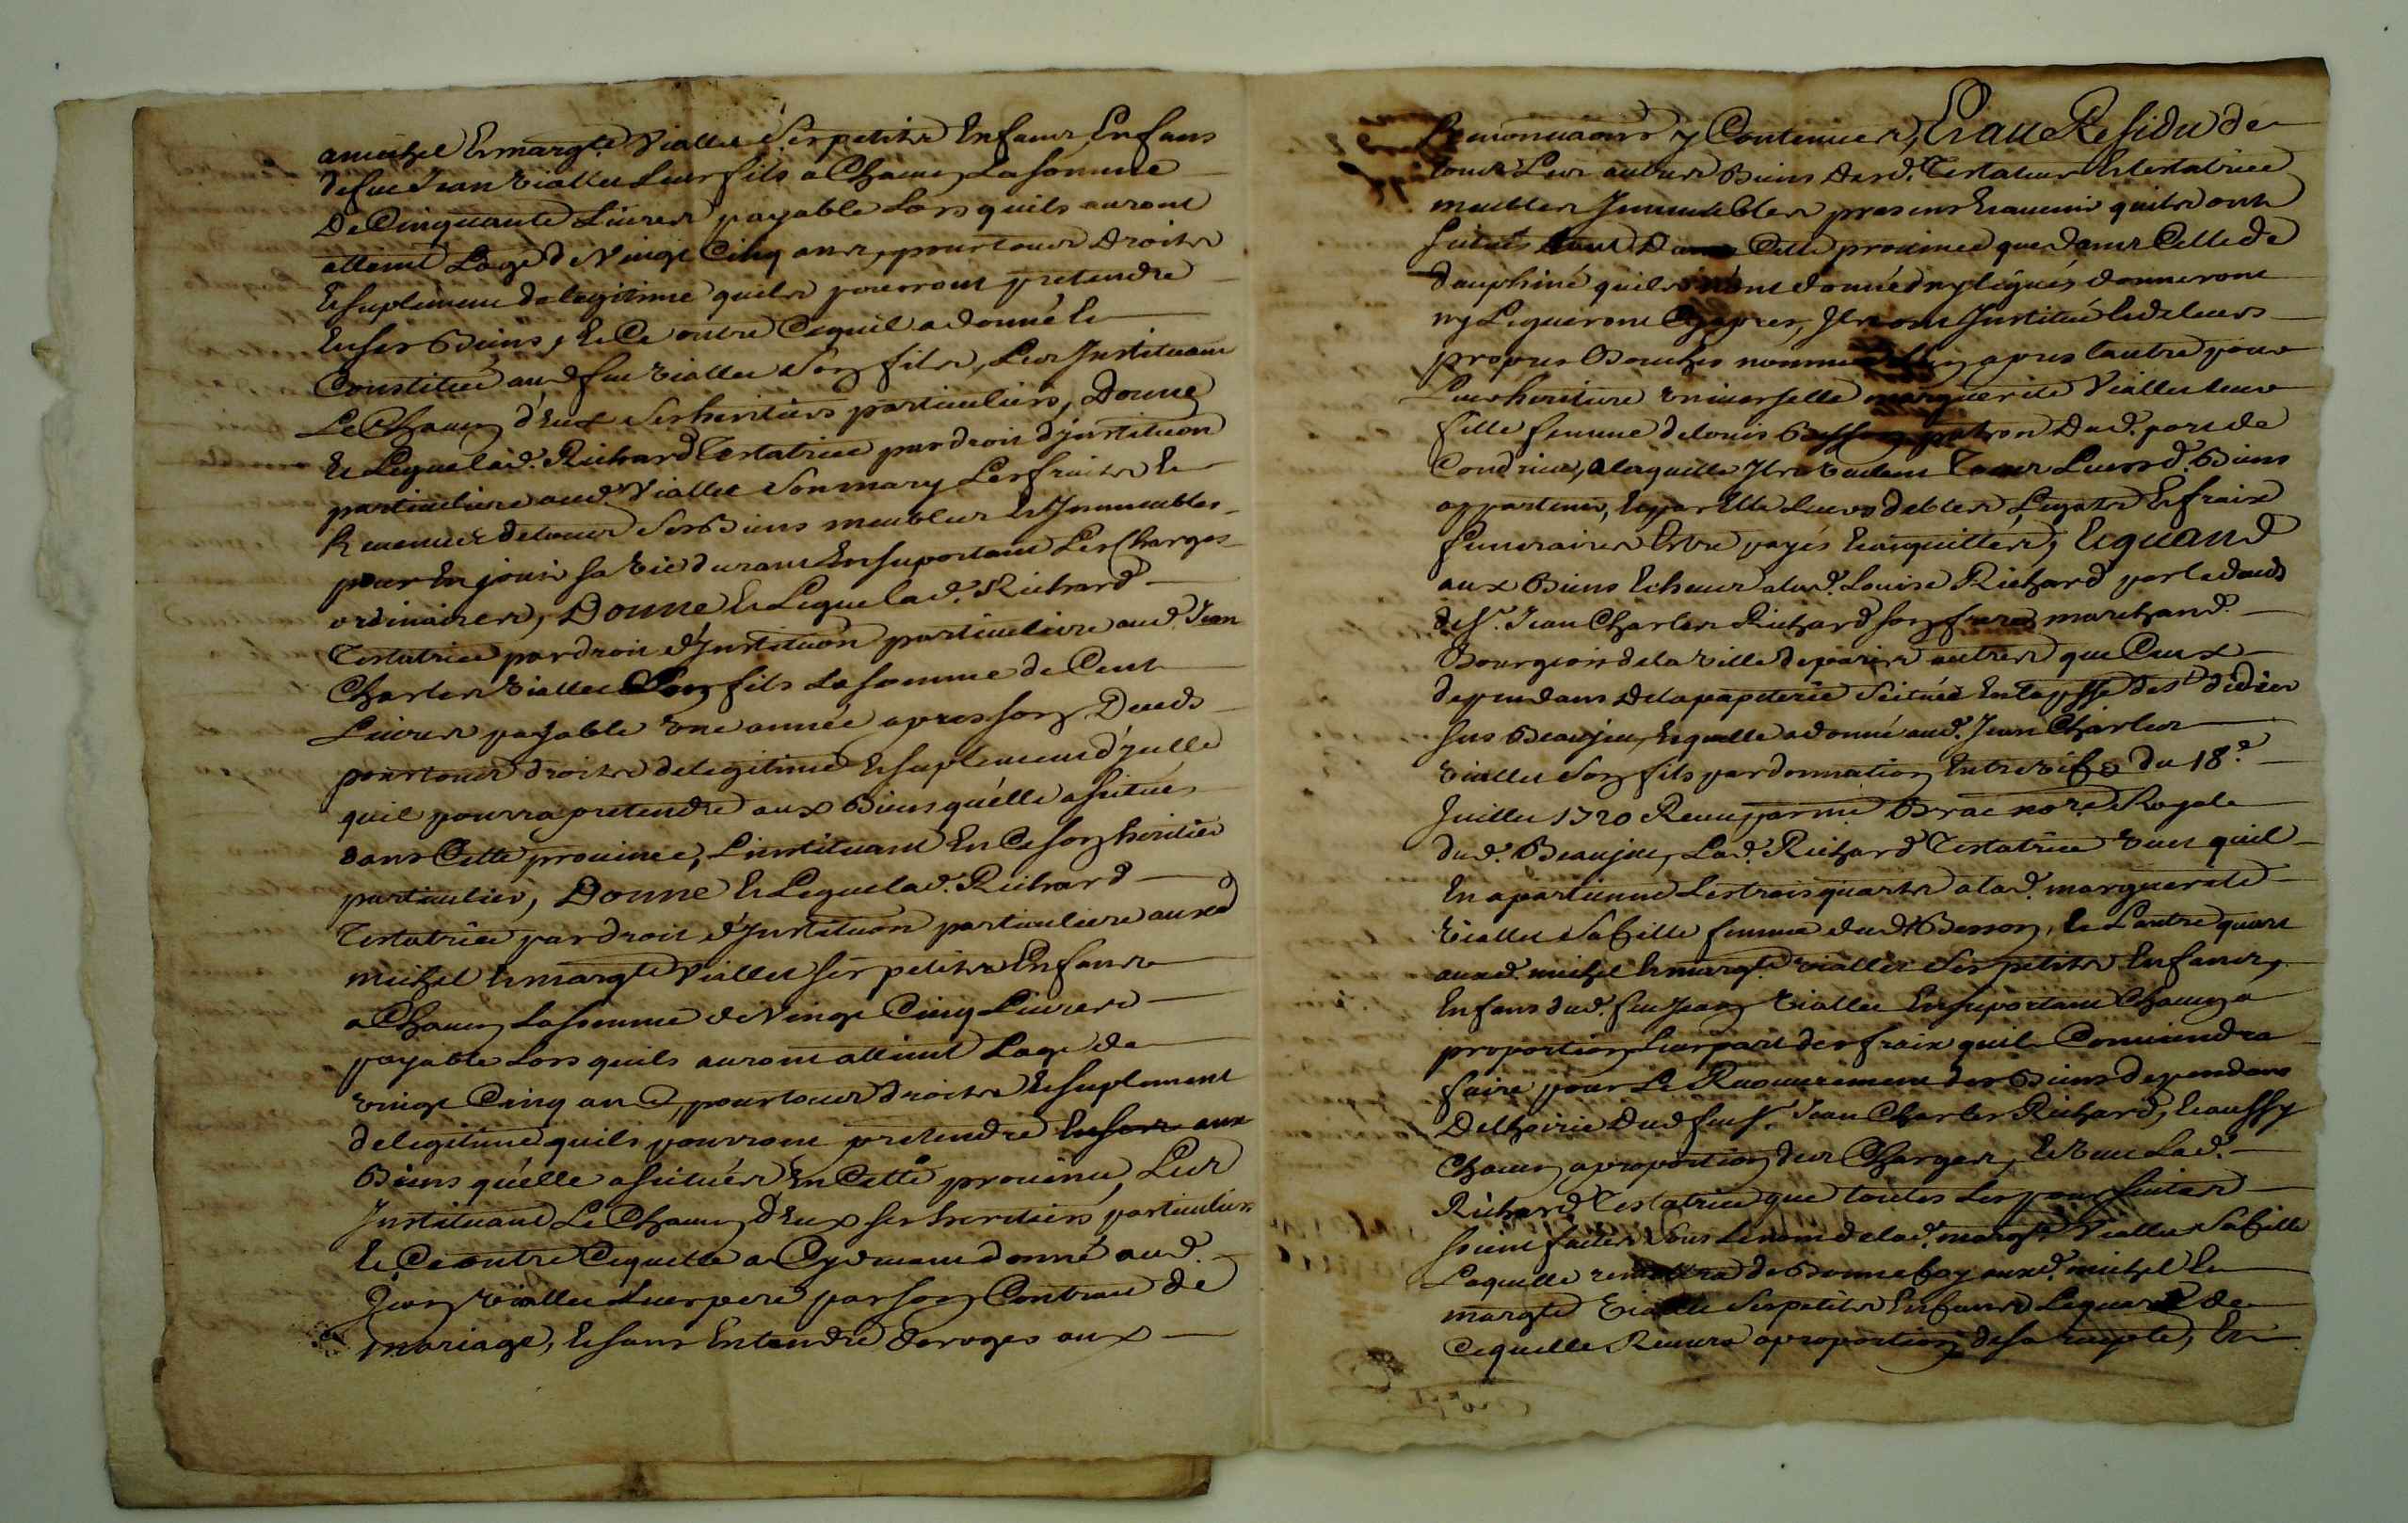 a michel Et margte Viallet Ses petits Enfans, Enfans
de feu Jean Viallet Leur fils a Chacun La somme
De Cinquante Livres payable Lors quils auront
atteint Lage de Vingt Cinq ans, pour tous Droits
Et suplement de legitime quils pouront pretendre
En ses Biens, Et Ce outre Cequil a donné Et
Constitué aud feu Viallet Son fils, Les Instituant
Le Chacun d'Eux Ses heritiers particuliers, Donne
Et Legue lad. Richard Testatrice par droit d'jnstitution
particuliere aud. Viallet Son mary Les fruits Et
Revenus de tous Ses Biens meubles Et Jmmeubles
pour En jouir sa Vie durant En suportant Les Charges
ordinaires, Donne Et Legue lad. Richard
Testatrice par droit d'Jnstitution particuliere aud. Jean
Charles Viallet Son fils La somme de Cent
Livres payable Une année apres son Deceds
pour tous droits de legitime Et suplement d'jcelle
quil pourra pretendre aux Biens qu'elle a situés
dans Cette province, L'instituant En Ce son heritier
particulier, Donne Et Legue lad. Richard
Testatrice par droit d'Jnstitution particuliere auxd
michel Et margte Viallet ses petits Enfans
a Chacun La somme de Vingt Cinq Livres
payable Lors quils auront atteint Lage de
vingt Cinq ans, pour tous droits Et suplement
de legitime quils pourront pretendre En ses aux
Biens qu'elle a situés En Cette province, Les
Jnstituant Le Chacun d'Eux ses heritiers particuliers
Et Ce outre Cequelle a Cydevant donné aud.
Jean Viallet Leur pere par son Contrat de
mariage, Et sans Entendre deroger aux
y Contenues, Et au Residu de
tous Les autres Biens Desd. Testateur Et testatrice
meubles Jmmeubles presens Et avenir quils ont
situés tant Dans Cette province que dans Celle de
dauphiné quils n'ont donnés ny légués donneront
ny Legueront Cy apres, Jls ont Jnstitué Et de leurs
propres Bouches nommé L'un apres L'autre pour
Leur heritiere Universelle marguerite Viallet leur
fille femme de Louis Besson patron Dud. port de
Condrieu, a laquelle Jls Veulent Tous Leursd. Biens
appartenir, Et par Elle Leurs debtes, Legats Et fraix
funeraires Estre payés Et acquittés, Et quand
aux Biens Echeus a lad. Louise Richard par le deceds
de Sr. Jean Charles Richard son frere marchand
Bourgeois de la Ville de paris autres que Ceux
dependans De la papeterie Scituée En la psse de St didier
sus Beaujeu, Et quelle a donné aud. Jean Charles
Viallet Son fils par donnation Entre Vifs du 18e
Juillet 1720 Receu par me Brac nore Royal
dud. Beaujeu, Lad. Richard Testatrice Veut quil
En apartienne Les trois quarts a lad. marguerite
Viallet Sa fille femme dud. Besson, Et L'autre quart
auxd. michel Et margte Viallet Ses petits Enfans,
Enfans dud. feu Jean Viallet En suportant Chacun a
proportion Leur part des fraix quil Conviendra
faire pour Le Recouvrement des Biens dependans
De L'hoirie Dud feu Sr. Jean Charles Richard, Et aussy
Chacun a proportion des Charges, Et Veut Lad.
Richard Testatrice que toutes Les poursuites
soient faites Sous Le nom de lad. margte Viallet Sa fille
Laquelle remettra de Bonne foy auxd. michel Et
margte Viallet Ses petits Enfans Le quart de
Cequelle Recevra a proportion de sa recepte, Et